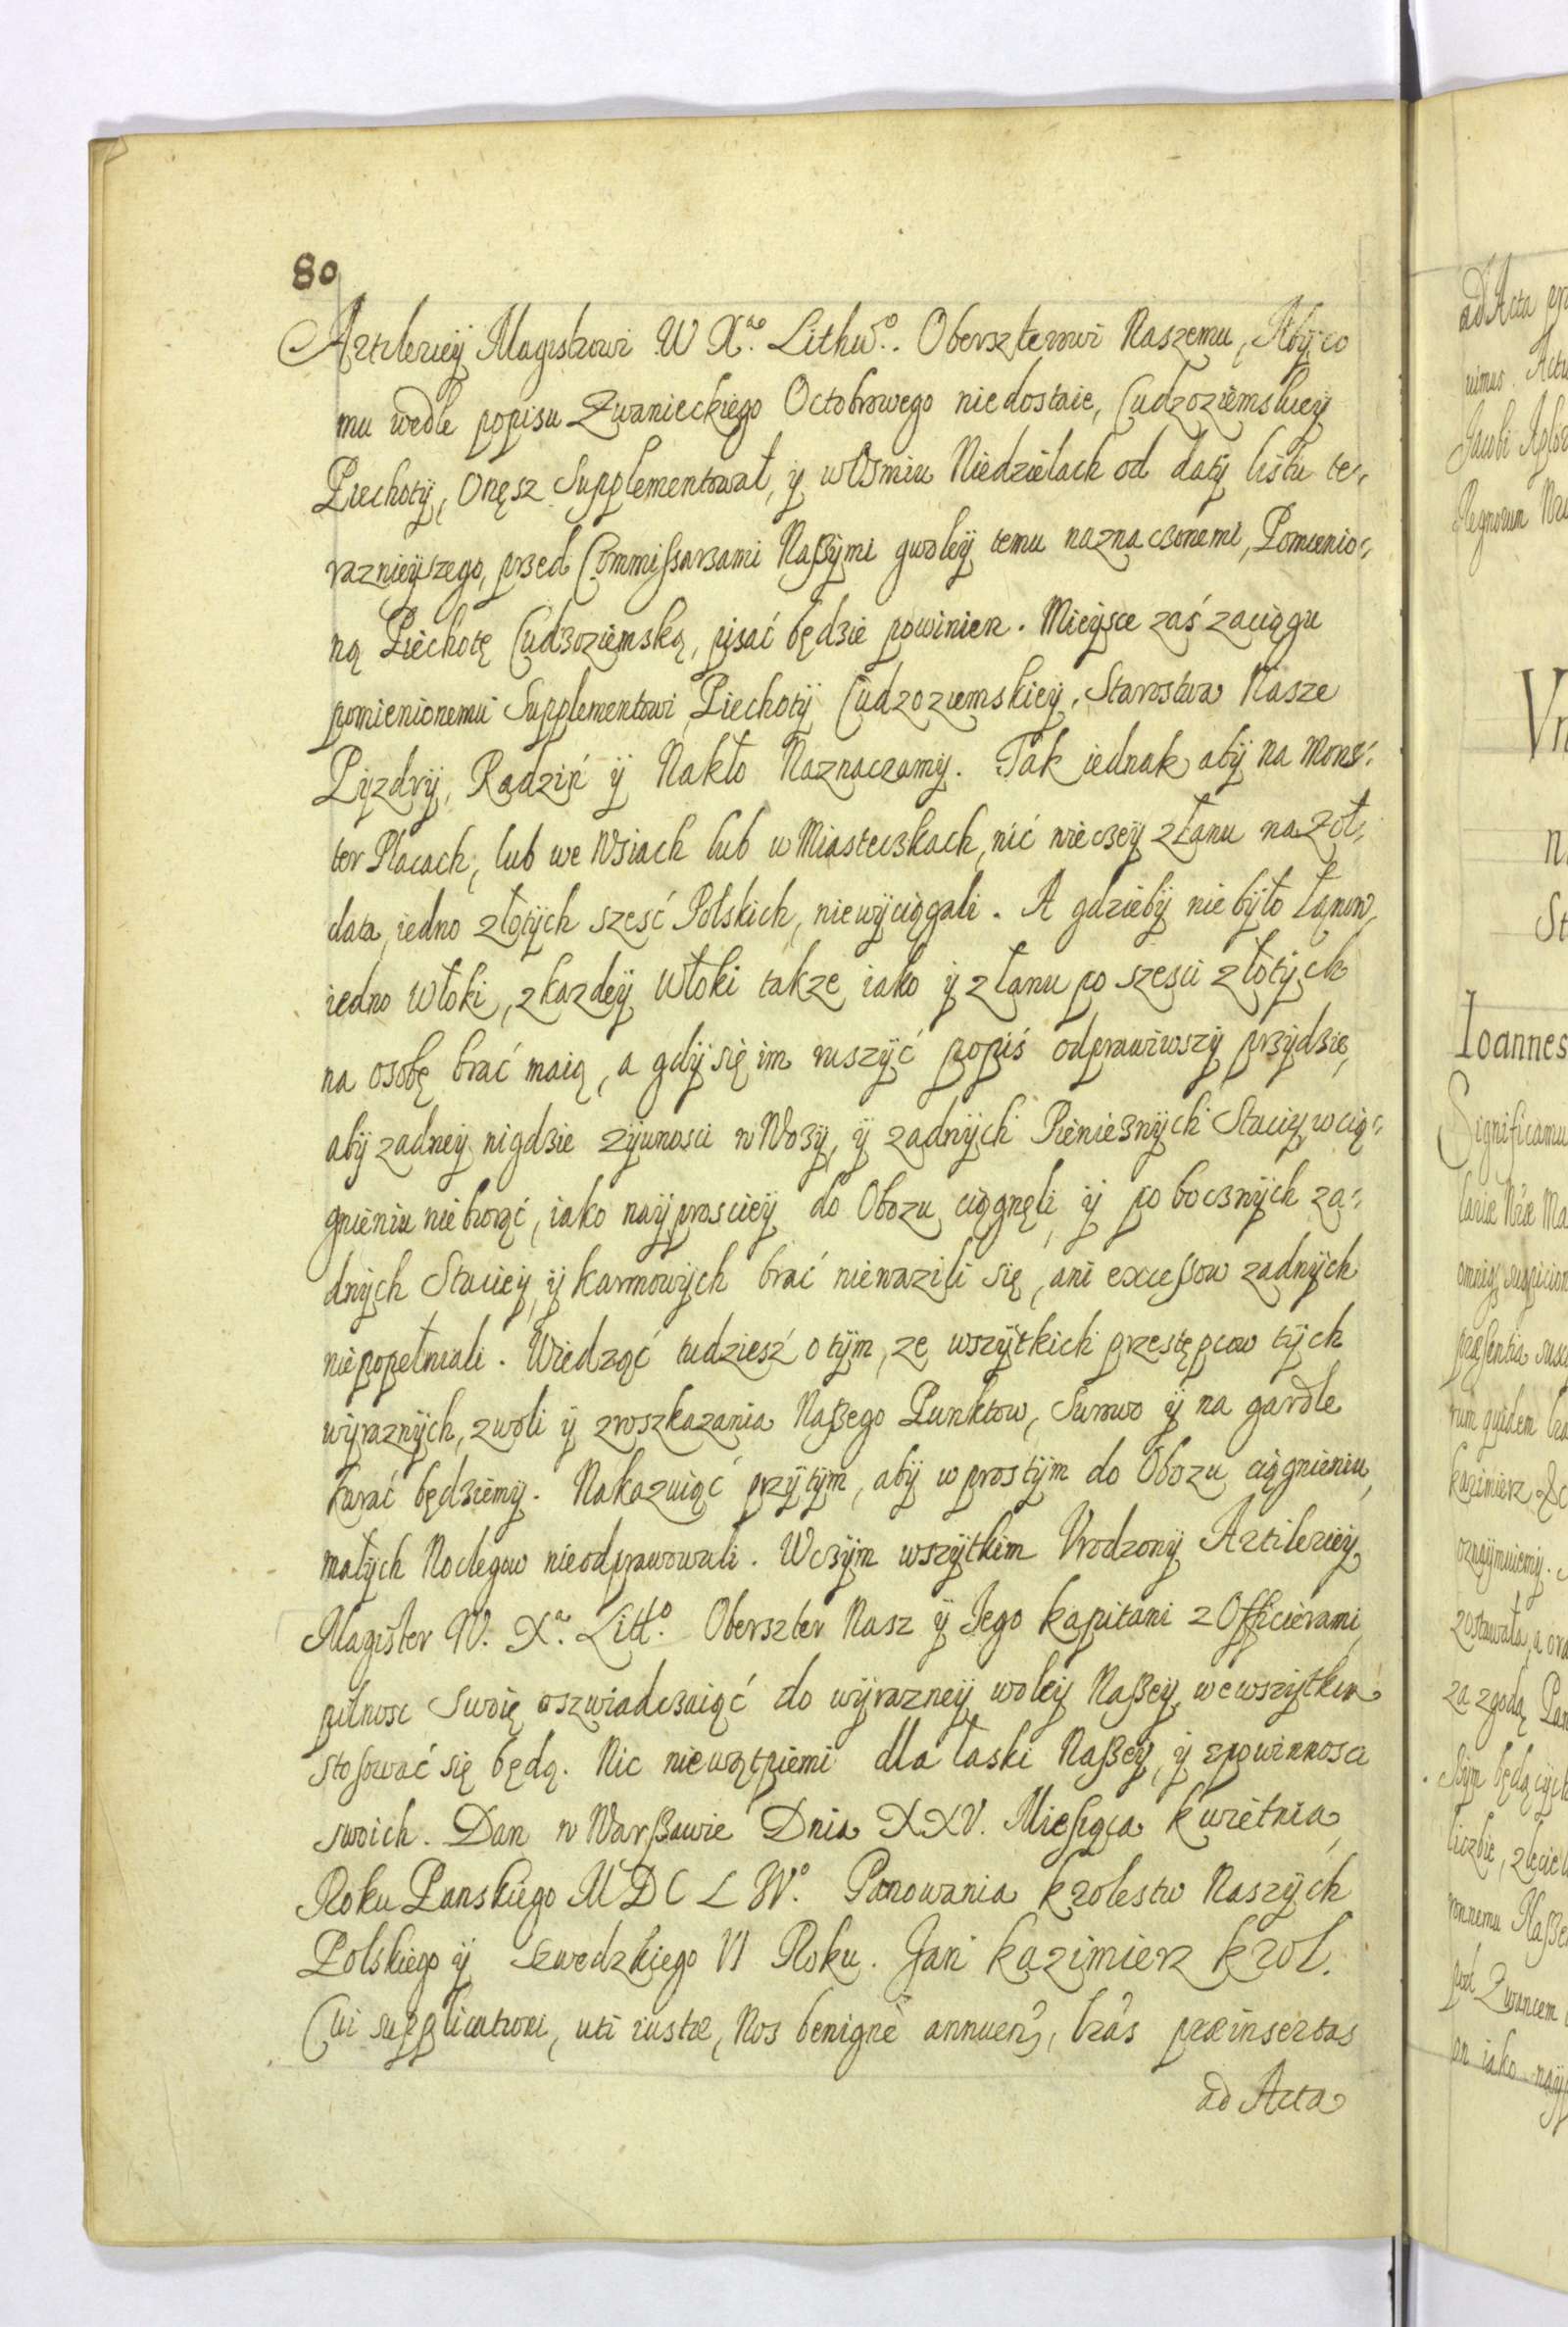 80
Artileriey Magistrowi W Xa. Lithwo. Oberszterowi Naszemu, Aby co
mu wedle popisu Zwanieckiego Octobrowego niedostaie, Cudzoziemskiey
Piechoty, onęsz Supplementował, y w Osmiu Niedzielach od daty listu te=
raznieyszego, przed Commissarzami Naszymi gwoley temu naznaczonemi, Pomienio=
ną Piechotę Cudzoziemską, pisać będzie powinien. Mieysce zaś zaciągu
pomienionemu Supplementowi Piechoty Cudzoziemskiey, Starostwa Nasze
Pyzdry, Radziń y Nakło Naznaczamy. Tak iednak aby na Mons=
ter Placach, lub we Wsiach lub w Miasteczkach, nić wieczey z łanu na Zoł=
data, iedno złotych sześć Polskich, niewyciągali. A gdzieby nie było łanow,
iedno Włoki, z kazdey Włoki takze iako y z łanu po szesci złotych
na osobę brać maią, a gdy się im ruszyć popiś odprawiwszy przydzie,
aby zadney nigdzie zywnosci w Wozy, y zadnych Pieniężnych Staciy w cią=
gnieniu nie biorąć, iako nayprosciey do Obozu ciągnęli y po bocznych za=
dnych Staciey y karmowych brać niewazili się, ani excessow zadnych
niepopełniali. Wiedząć tudziesz o tym, ze wszytkich przestępcow tych
wyraznych, z woli y z roszkazania Naszego Punktow, Surowo y na gardle
karać będziemy. Nakazuiąć przytym, aby w prostym do Obozu ciągnieniu,
małych Noclegow nieodprawowali. W czym wszytkim Vrodzony Artileriey
Magister W. Xa. Litto. Oberszter Nasz y Jego kapitani z Officierami,
pilnosc Swoię oszwiadczaiąć do wyrazney woley Naszey, we wszytkim
stosować się będą. Nic niewątpiemi dla łaski Naszey, y z powinnosci
swoich. Dan w Warszawie Dnia XXV. Miesiąca kwietnia
Roku Panskiego MDCLIVo. Panowania krolestw Naszych
Polskiego y Szwedzkiego VI Roku. Jan kazimierz krol.
Cui supplicationi, uti iustæ, Nos benignè annuen, lras præinsertas
ad Acta
ad Acta
Ioannes
Significamus